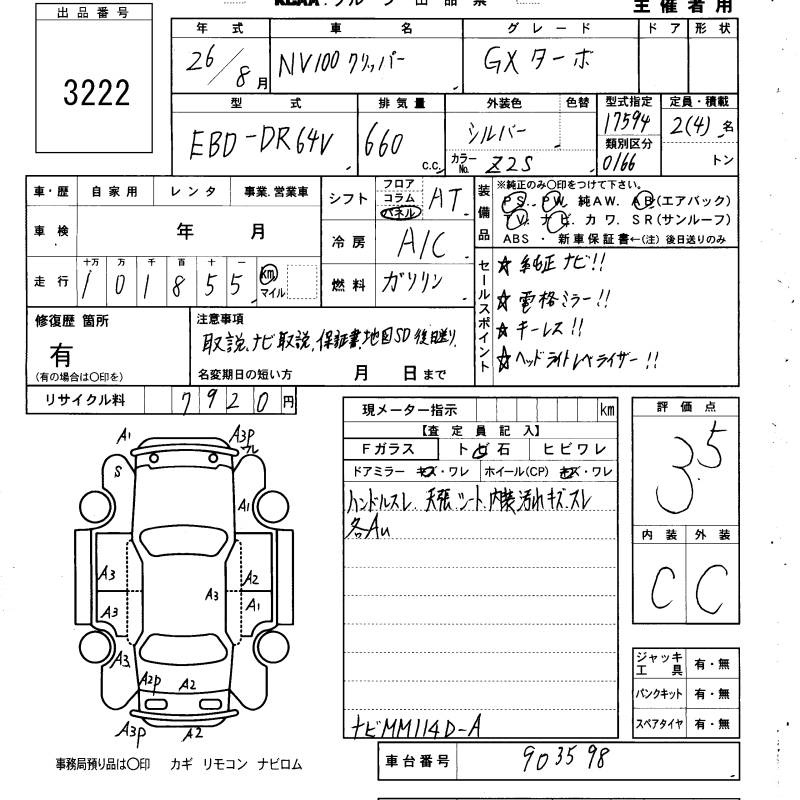 出品番号
3222
主催者用
年式 車名 グレード ドア 形状
26/8月 NV100クリッパー GXターボ
型式 排気量 外装色 色替 型式指定 定員・積載
EBD-DR64V 660 c.c. シルバー 17594 2(4)名
類別区分
カラーNo. Z2S 0166 トン
車・歴 自家用 レンタ 事業.営業車
シフト フロア コラム パネル AT
装備品
※純正のみ〇印をつけて下さい。
PS. PW. 純AW. AB(エアバック)
TV. ナビ. カワ. SR(サンルーフ)
ABS ・ 新車保証書←(注)後日送りのみ
車検 年 月
冷房 A/C
走行 十万 万 千 百 十 一
101855 km マイル
燃料 ガソリン
セールスポイント
☆純正ナビ!!
☆電格ミラー!!
☆キーレス!!
☆ヘッドライトレベライザー!!
修復歴 箇所
有
(有の場合は〇印を)
注意事項
取説、ナビ取説、保証書、地図SD後日送り.
名変期日の短い方 月 日まで
リサイクル料 7920円
現メーター指示 km
【査定員記入】
Fガラス トビ石 ヒビワレ
ドアミラー キズ・ワレ ホイール(CP) キズ・ワレ
ハンドルスレ、天張、シート、内装汚れキズ、スレ
各AU
ナビMM114D-A
評価点
3.5
内装 外装
C C
A1 A3P
S
A1
A3 A2
A3 A3 A1
A3
A2P A2
A3P A2
ジャッキ工具 有・無
パンクキット 有・無
スペアタイヤ 有・無
事務局預り品は〇印 カギ リモコン ナビロム
車台番号 903598